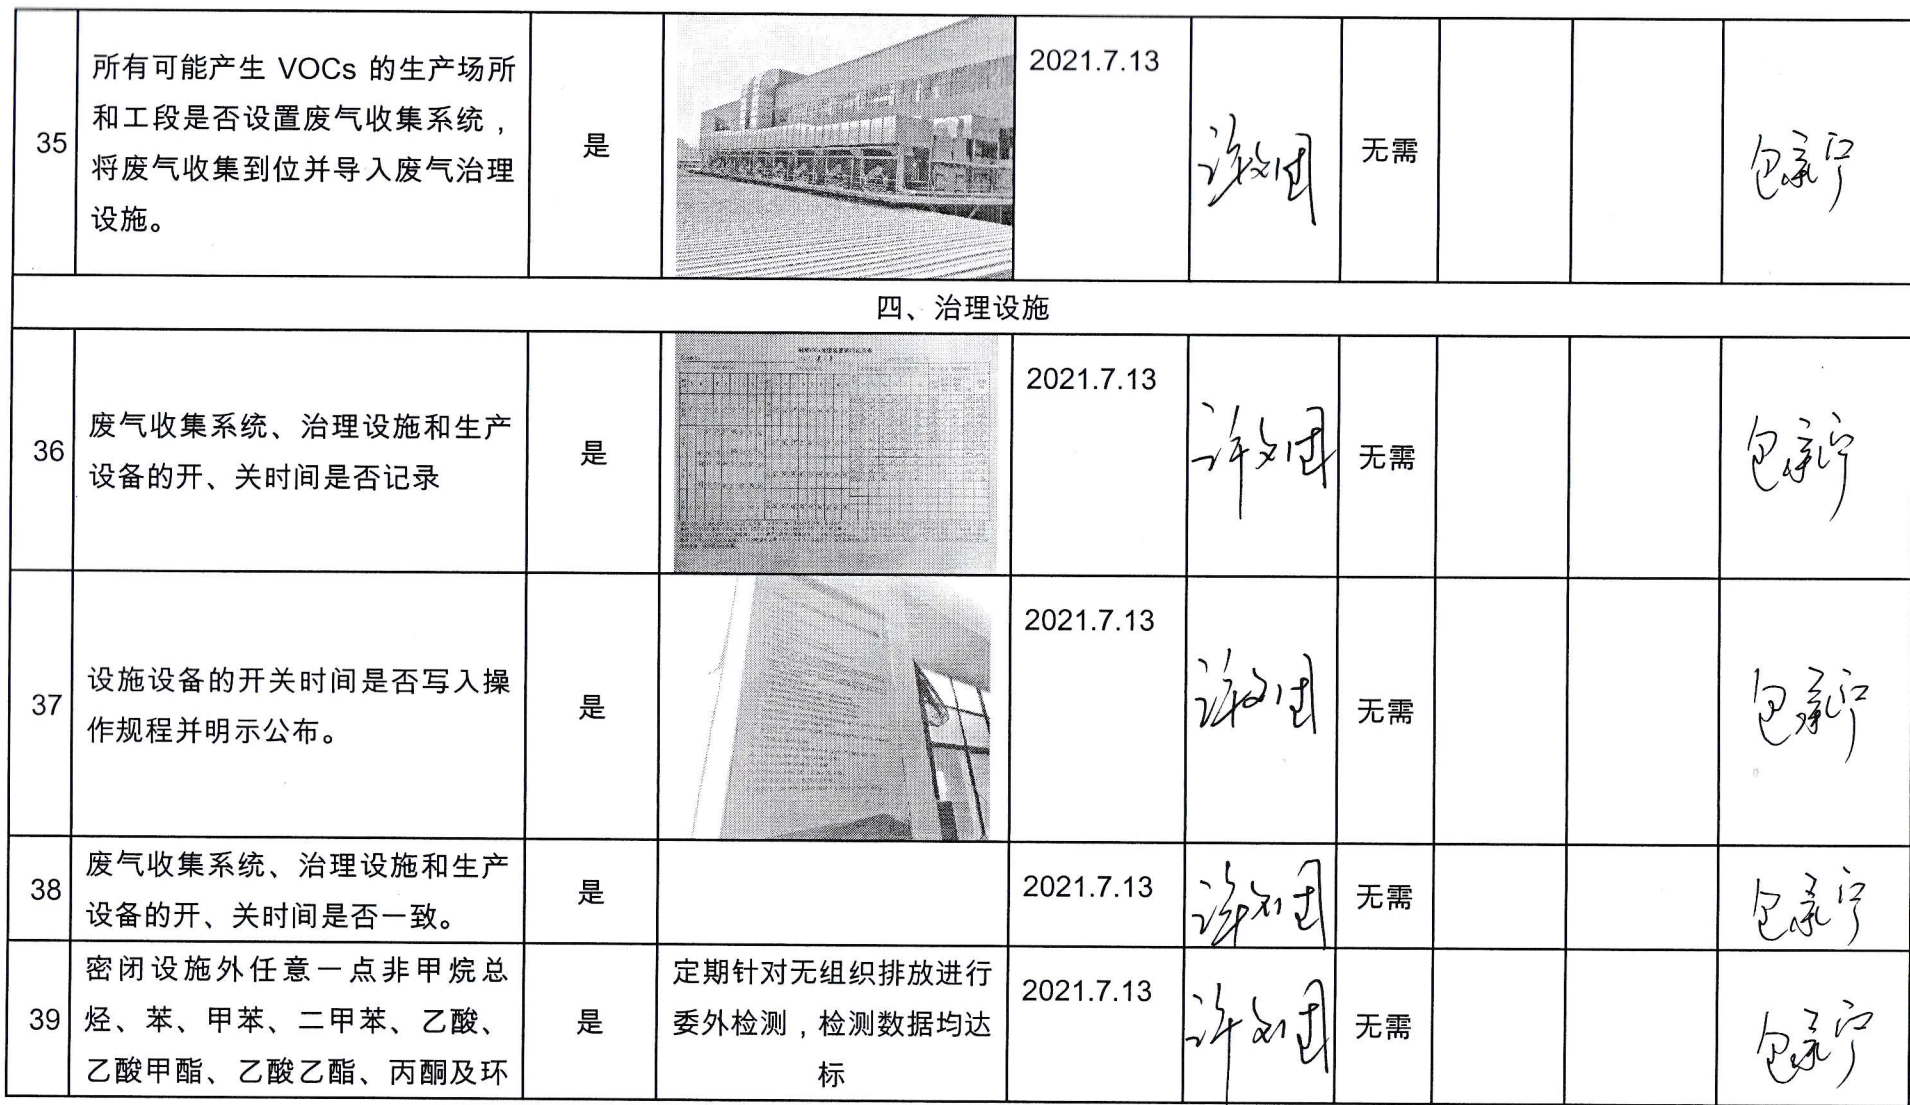 35
所有可能产生 VOCs 的生产场所
和工段是否设置废气收集系统，
将废气收集到位并导入废气治理
设施。
是
2021.7.13
许文团
无需
四、治理设施
36
废气收集系统、治理设施和生产
设备的开、关时间是否记录
是
2021.7.13
许文团
无需
37
设施设备的开关时间是否写入操
作规程并明示公布。
是
2021.7.13
许文团
无需
38
废气收集系统、治理设施和生产
设备的开、关时间是否一致。
是
2021.7.13
许文团
无需
39
密闭设施外任意一点非甲烷总
烃、苯、甲苯、二甲苯、乙酸、
乙酸甲酯、乙酸乙酯、丙酮及环
是
定期针对无组织排放进行
委外检测，检测数据均达
标
2021.7.13
许文团
无需